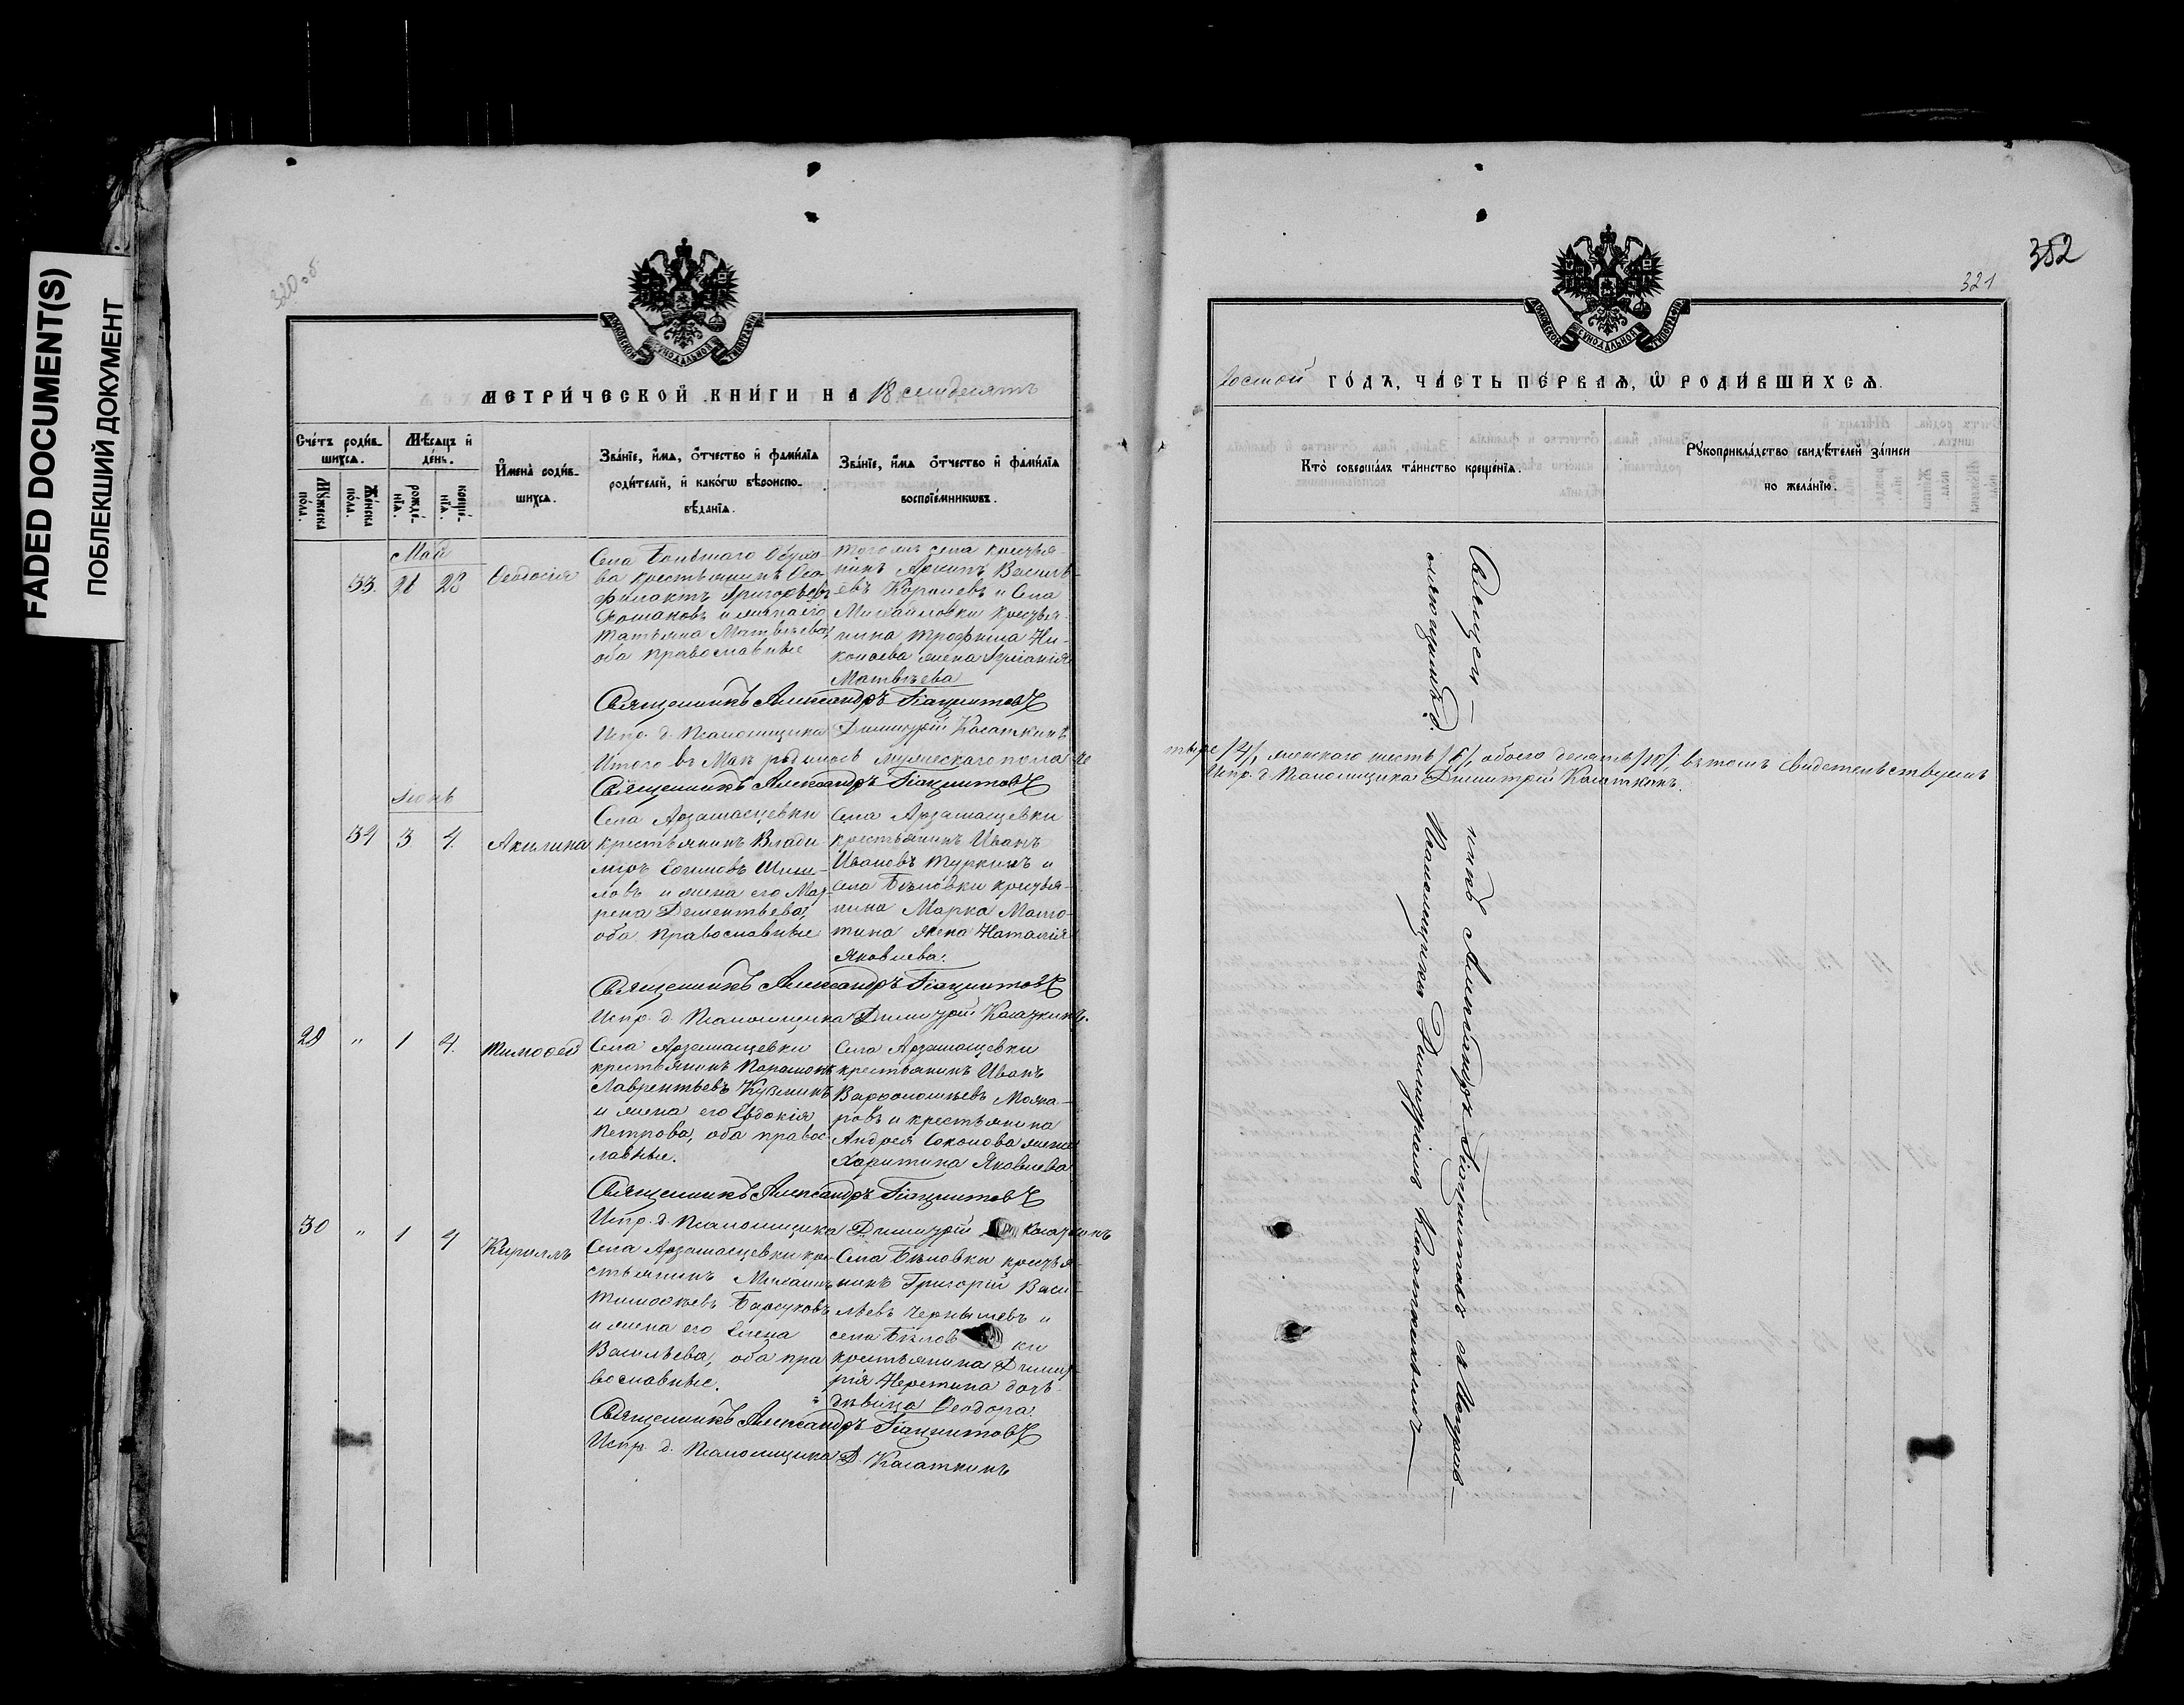 FADED DOCUMENT(S)
ПОБЛЕКШИЙ ДОКУМЕНТ
320 об
МОСКОВСКОЙ СѴНОДАЛЬНОЙ ТИПОГРАФІИ
МЕТРИ́ЧЕСКОЙ КНИ́ГИ НА 18 семдесятъ
Сче́тъ роди́в-
шихсѧ.
Мѣ́сѧцъ и҆
де́нь.
Мꙋ́жеска
по́ла.
Же́нска
по́ла.
рожде́-
нїѧ.
креще́-
нїѧ.
И҆мена̀ роди́в-
шихсѧ.
Зва́нїе, и҆́мѧ, ѻ҆́тчество и҆ фами́лїѧ
роди́телей, и҆ како́гѡ вѣроиспо-
вѣ́данїѧ.
Зва́нїе, и҆́мѧ ѻ҆́тчество и҆ фами́лїѧ
воспрїе́мникѡвъ.
Май
33. 26 28 Ѳеодосія
Села Большаго Обухо-
ва крестьянинъ Ѳео-
филактъ Григорьевъ
и жена его
Татьяна Матвѣева,
оба православные
Тогожъ села крестья-
нинъ Архипъ Василь-
евъ Королевъ и Села
Михайловки крестья-
нина Трофима Ни-
жена
Матвѣева
Священникъ Александръ Гіацинтовъ
Испр. д. Псаломщика Димитрій Касаткинъ
Итого въ Маѣ родилось мужескаго пола че
Священникъ Александръ Гіацинтовъ
Іюнь
34 3 4. Акилина
Села Арзамасцевки
крестьянинъ Влади
міръ Шиш-
ловъ и жена его Мат-
рена Дементьева,
оба православные
Села Арзамасцевки
крестьянинъ Иванъ
Ивановъ Туркинъ и
села Бѣловки крестья-
нина Марка
жена Наталія
Яковлева.
Священникъ Александръ Гіацинтовъ
Испр. д. Псаломщика Димитрій Касаткинъ.
29 " 1 4. Тимоѳей
Села Арзамасцевки
крестьянинъ Парамонъ
Лаврентьевъ Кузминъ
и жена его Евдокія
Петрова, оба правос-
лавные.
Села Арзамасцевки
крестьянинъ Иванъ
Варѳоломѣевъ
ровъ и крестьянина
Андрея Соколова жена
Харитина Яковлева
Священникъ Александръ Гіацинтовъ
Испр. д. Псаломщика Димитрій Касаткинъ
30 " 1 4 Кириллъ
Села Арзамасцевки кре-
стьянинъ Михаилъ
Тимоѳѣевъ Барсуковъ
и жена его Елена
Васильева, оба пра
вославные.
Села Бѣловки крестья-
нинъ Григорій Васи-
льевъ Чернышевъ и
села Бѣлов ки
крестьянина Димит-
рія дочь
дѣвица Ѳеодора.
Священникъ Александръ Гіацинтовъ
Испр. д. Псаломщика Д. Касаткинъ
352
321
МОСКОВСКОЙ СѴНОДАЛЬНОЙ ТИПОГРАФІИ
ГО́ДЪ, ЧА́СТЬ ПЕ́РВАѦ, Ѡ҆ РОДИ́ВШИХСѦ.
Кто̀ соверша́лъ та́инство креще́нїѧ.
Рꙋкоприкла́дство свидѣ́телей за́писи
по жела́нїю.
тыре /4/, женскаго шесть /6/, обоего десять /10/, въ томъ свидетельствуемъ
Испр. д. Псаломщика Димитрій Касаткинъ.
Священ-
никъ Александръ Гіацинтовъ съ Исправ-
ляющимъ д. Псаломщика Димитріемъ Касаткинымъ